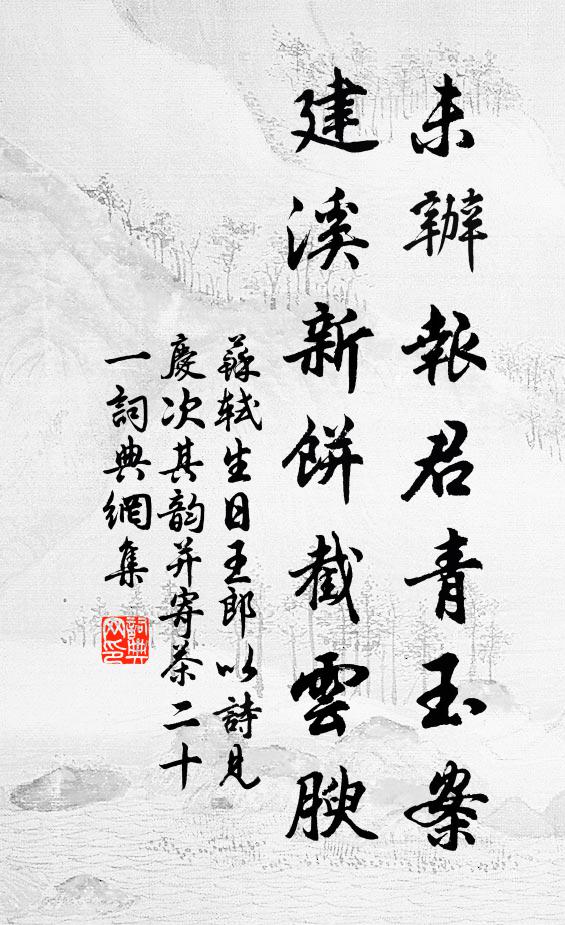 未辦報君青玉案
建溪新餅截雲腴
蘇軾生日王郎以詩見
慶次其韵并寄茶二十
一詞典網集
詞典
网印